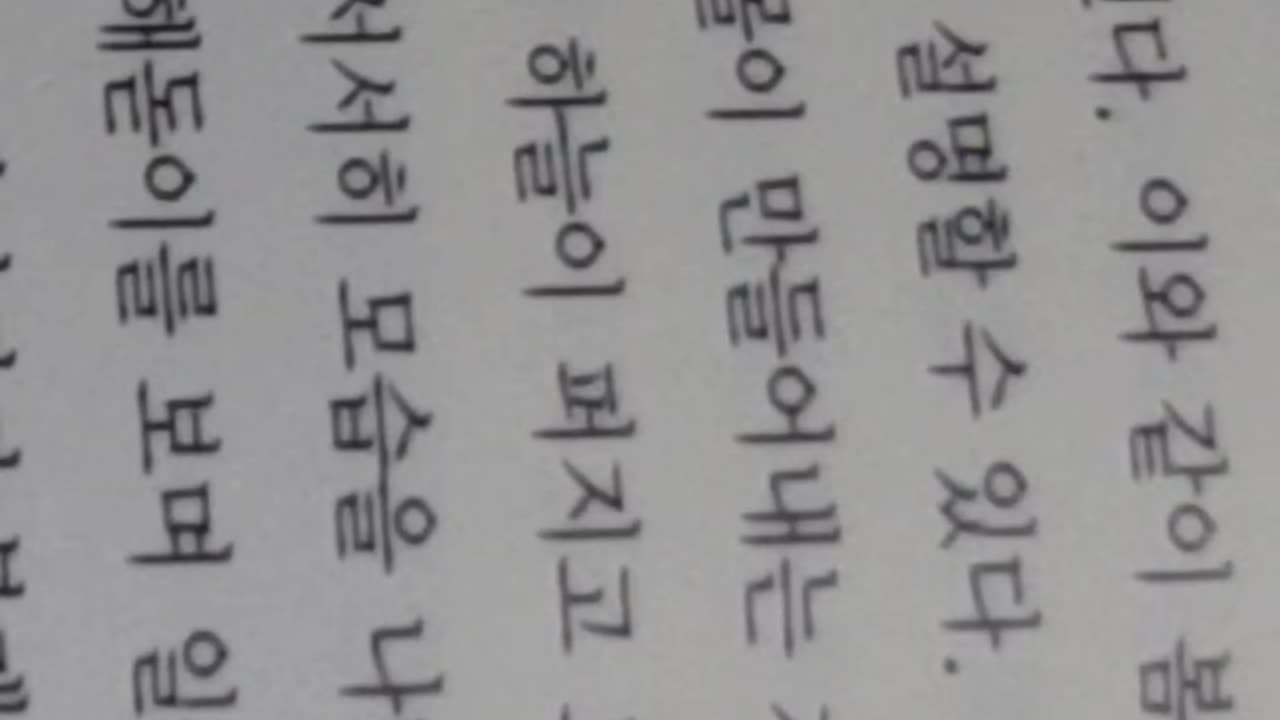 다. 이와 같이 봄
설명할 수 있다.
이 만들어내는
하늘이 퍼지고
서서히 모습을 나
해돋이를 보며 일